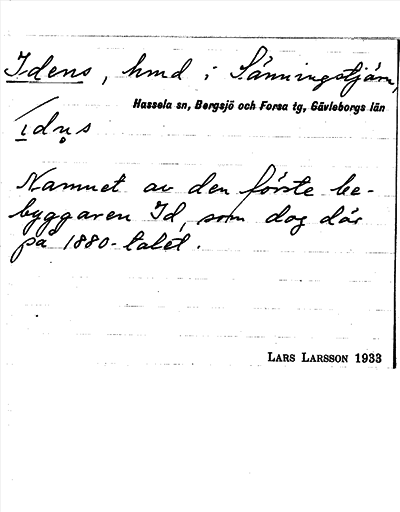 Idens, hmd i Sänningstjärn,
Hassela sn, Bergsjö och Forsa tg, Gävleborgs län
Namnet av den förste be-
byggaren Id, som dog där
på 1880-talet.
LARS LARSSON 1933